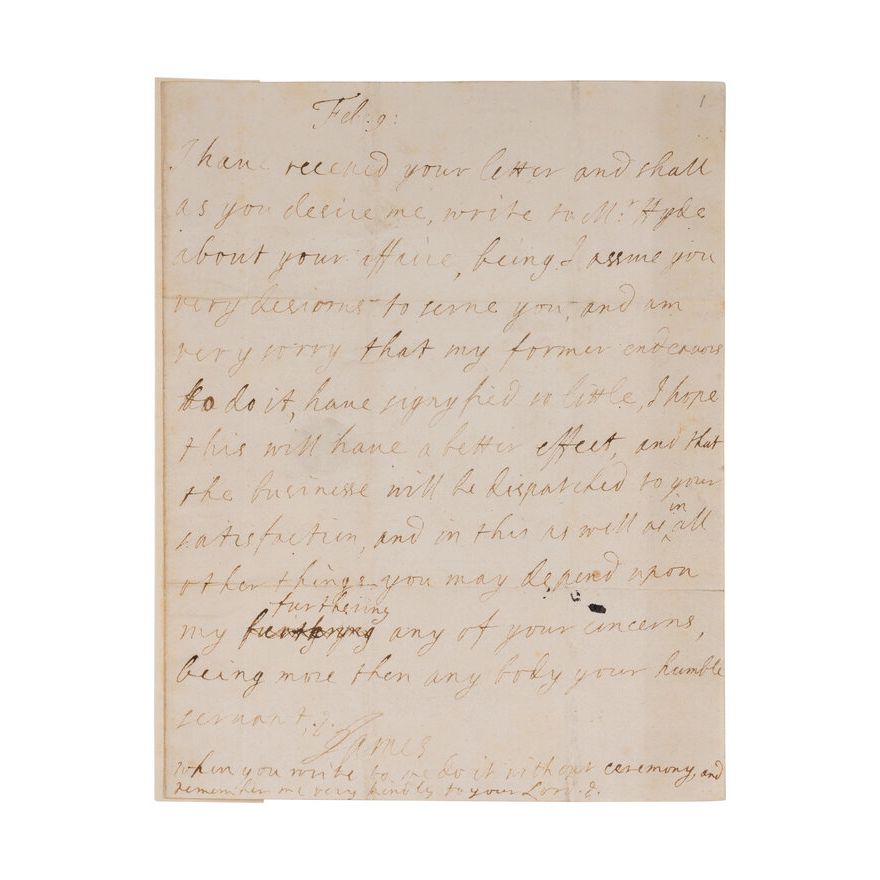 1
Feb: 9:
I have receued your letter and shall
as you desire me, write to Mr. Hyde
about your affaire, being I assure you
very desirous to serue you, and am
very sorry that my former endeavors
to do it, haue signyfied so little, I hope
this will haue a better effect, and that
the businesse will be dispatched to your
satisfaction, and in this as well as in all
other things you may depend upon
my furthering any of your concerns,
being more then any body your humble
seruant,
James
when you write to me do it without ceremony, and
remember me very kindly to your Lord.